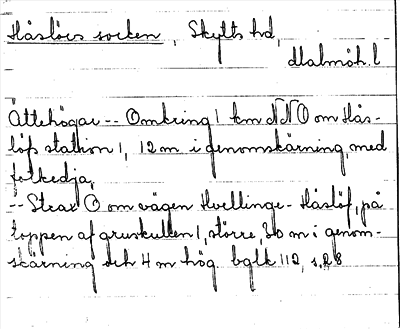 Håslövs socken, Skytts hd,
Malmöh. l
Ättehögar -- Omkring 1 km NNO om Hås-
löfs station 1, 12 m i genomskärning, med
fotkedja,
-- Strax O om vägen Hvellinge - Håslöf, på
toppen af gruskullen 1, större, 30 m i genom-
skärning och 4 m hög. bglk 112, s. 28